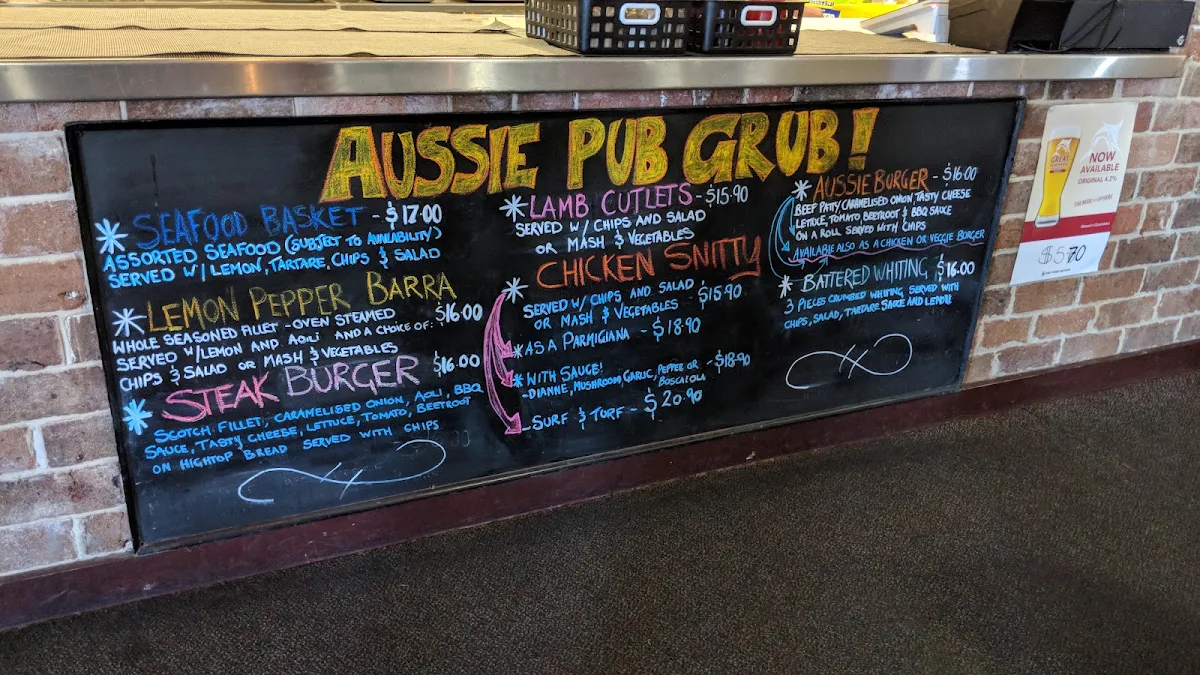 AUSSIE PUB GRUB!
SEAFOOD BASKET - $17.00
ASSORTED SEAFOOD (SUBJECT TO AVAILABILITY)
SERVED W/ LEMON, TARTARE, CHIPS & SALAD
LEMON PEPPER BARRA
$16.00
WHOLE SEASONED FILLET - OVEN STEAMED
SERVED W/LEMON AND AOLI AND A CHOICE OF:
CHIPS & SALAD OR MASH & VEGETABLES
STEAK BURGER $16.00
SCOTCH FILLET, CARAMELISED ONION, AOLI, BBQ
SAUCE, TASTY CHEESE, LETTUCE, TOMATO, BEETROOT
ON HIGHTOP BREAD SERVED WITH CHIPS
LAMB CUTLETS - $15.90
SERVED W/ CHIPS AND SALAD
OR MASH & VEGETABLES
CHICKEN SNITTY
SERVED W/ CHIPS AND SALAD
OR MASH & VEGETABLES - $15.90
AS A PARMIGIANA - $18.90
WITH SAUCE! - $18.90
- DIANNE, MUSHROOM, GARLIC, PEPPER OR
BOSCAIOLA
- SURF & TURF - $20.90
AUSSIE BURGER - $16.00
BEEF PATTY, CARAMELISED ONION, TASTY CHEESE
LETTUCE, TOMATO, BEETROOT & BBQ SAUCE
ON A ROLL SERVED WITH CHIPS
AVAILABLE ALSO AS A CHICKEN OR VEGGIE BURGER
BATTERED WHITING, $16.00
3 PIECES CRUMBED WHITING SERVED WITH
CHIPS, SALAD, TARTARE SAUCE AND LEMON
GREAT
NOW
AVAILABLE
ORIGINAL 4.2%
$5.70